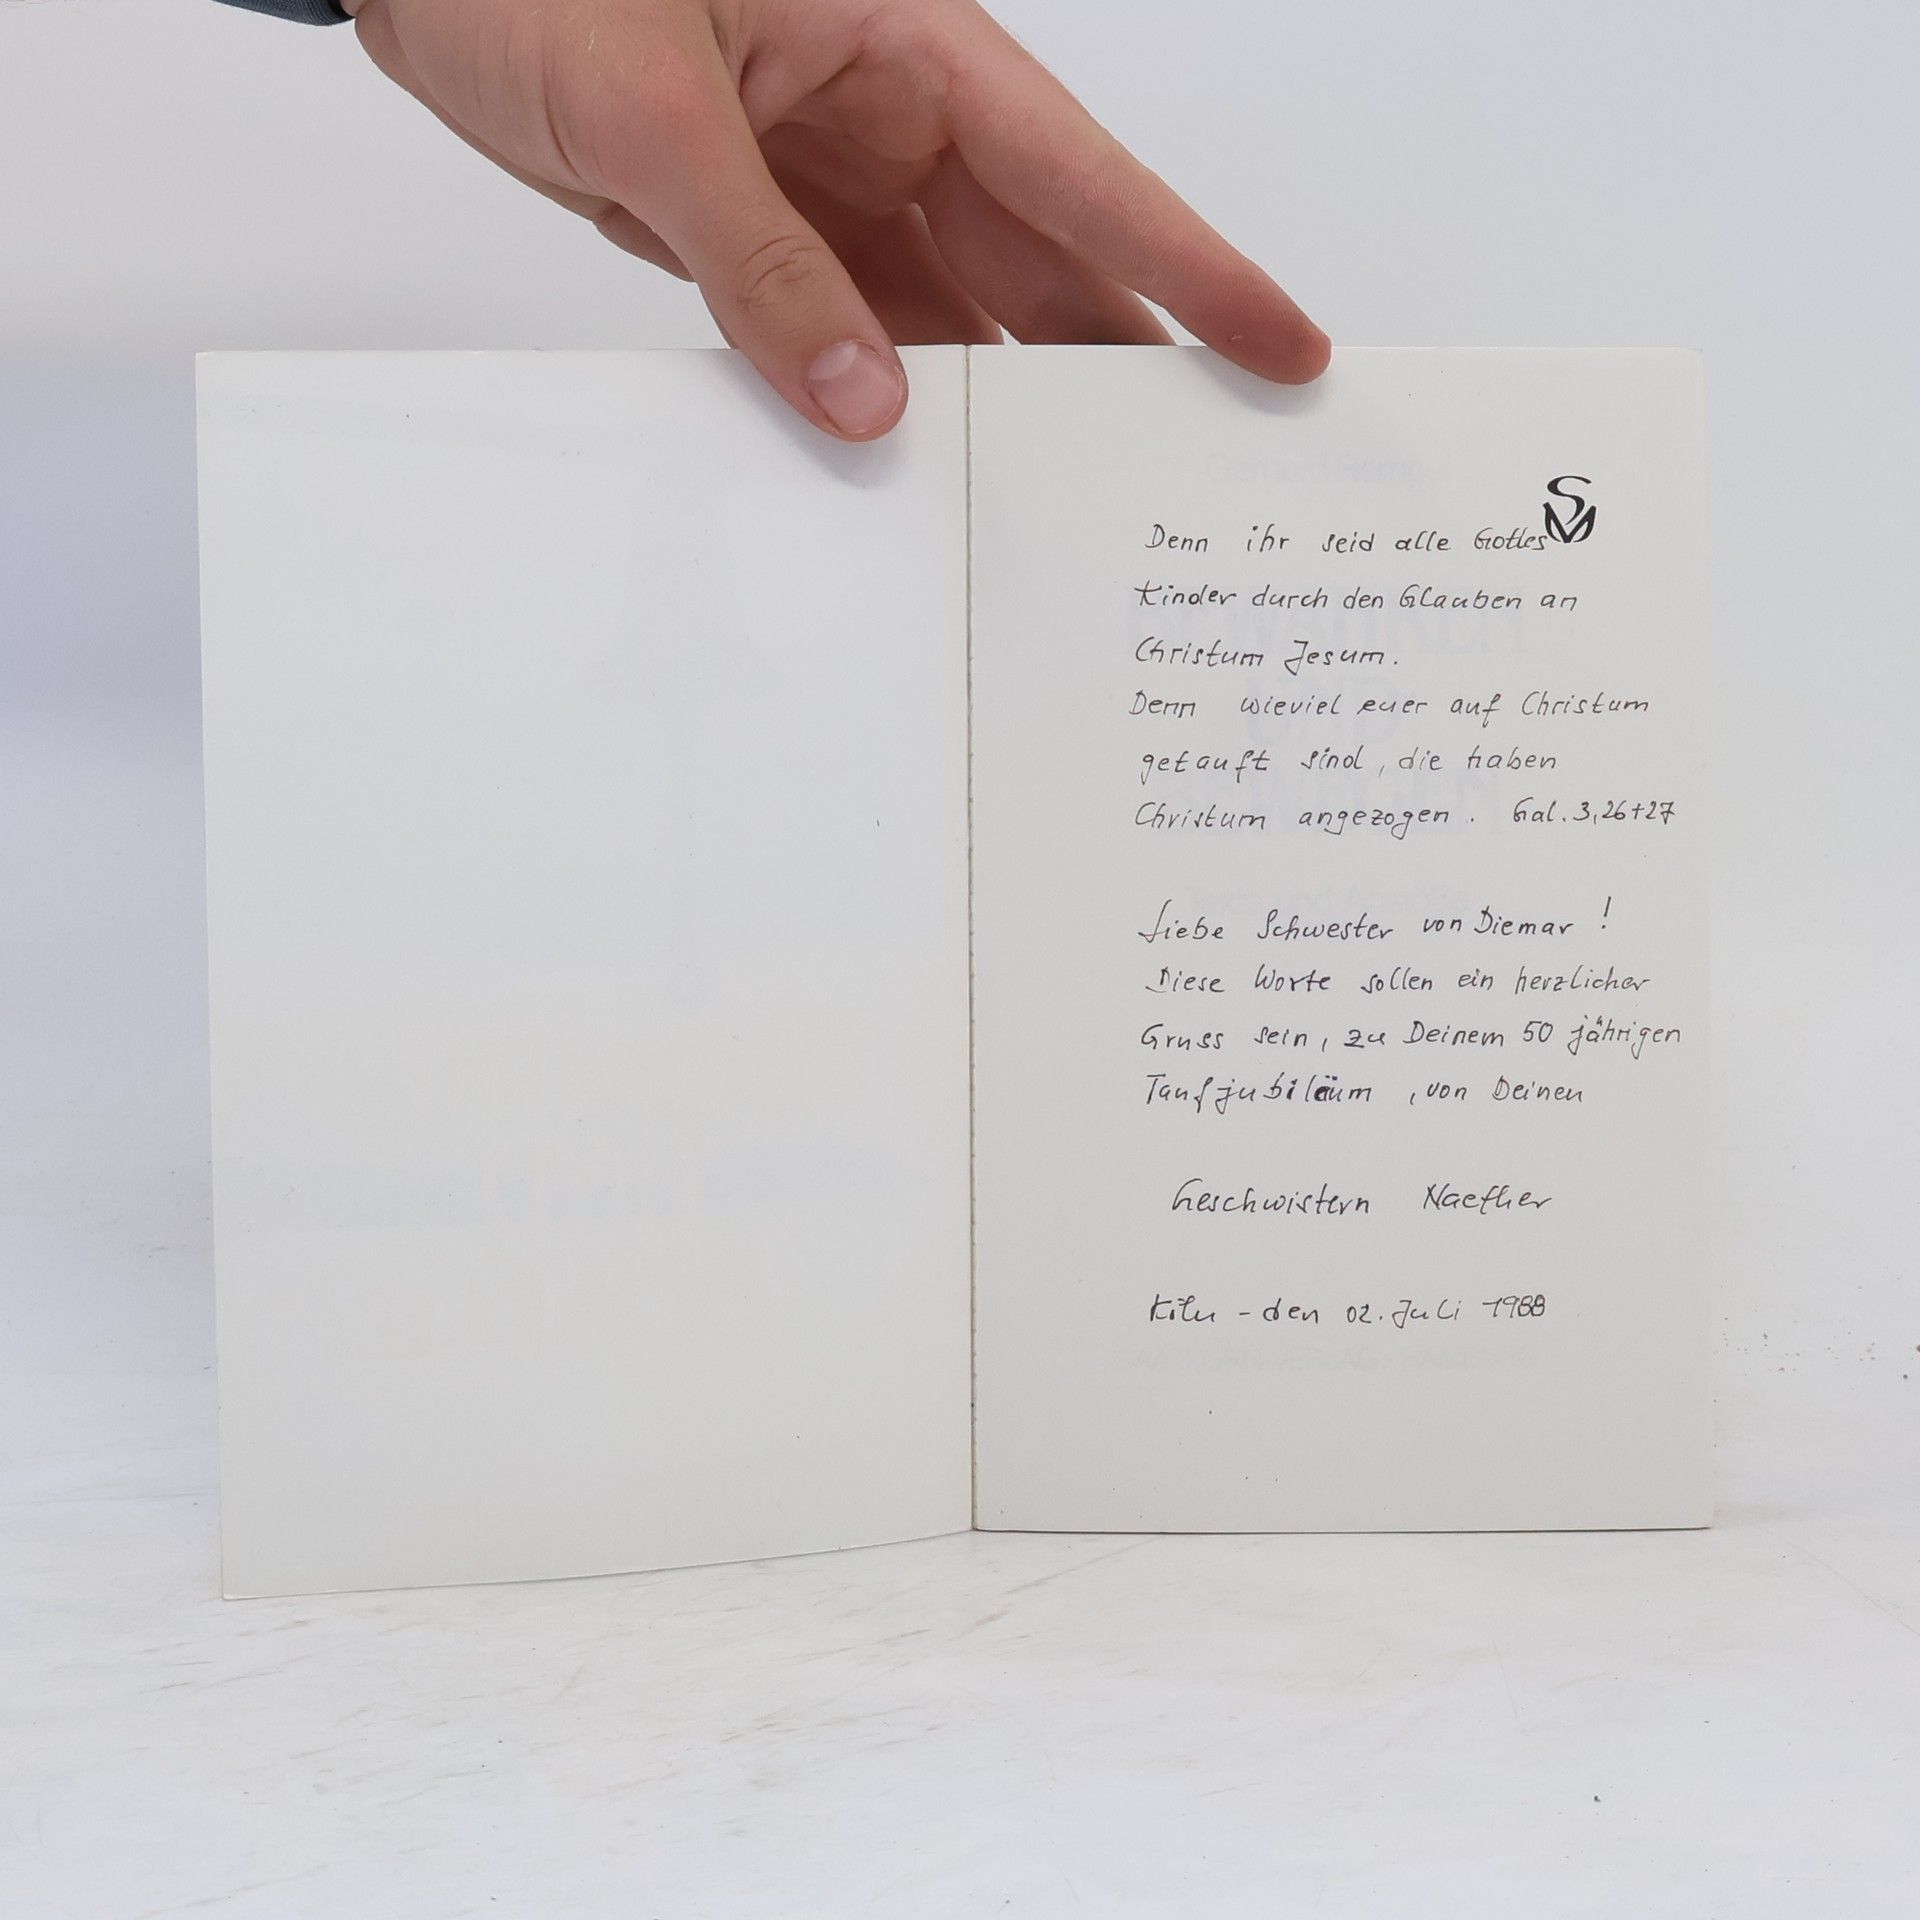 Denn ihr seid alle Gottes
Kinder durch den Glauben an
Christum Jesum.
Denn wieviel euer auf Christum
getauft sind, die haben
Christum angezogen. Gal. 3,26+27
Liebe Schwester von Diemar!
Diese Worte sollen ein herzlicher
Gruss sein, zu Deinem 50 jährigen
Taufjubiläum, von Deinen
Geschwistern Naether
Köln - den 02. Juli 1988